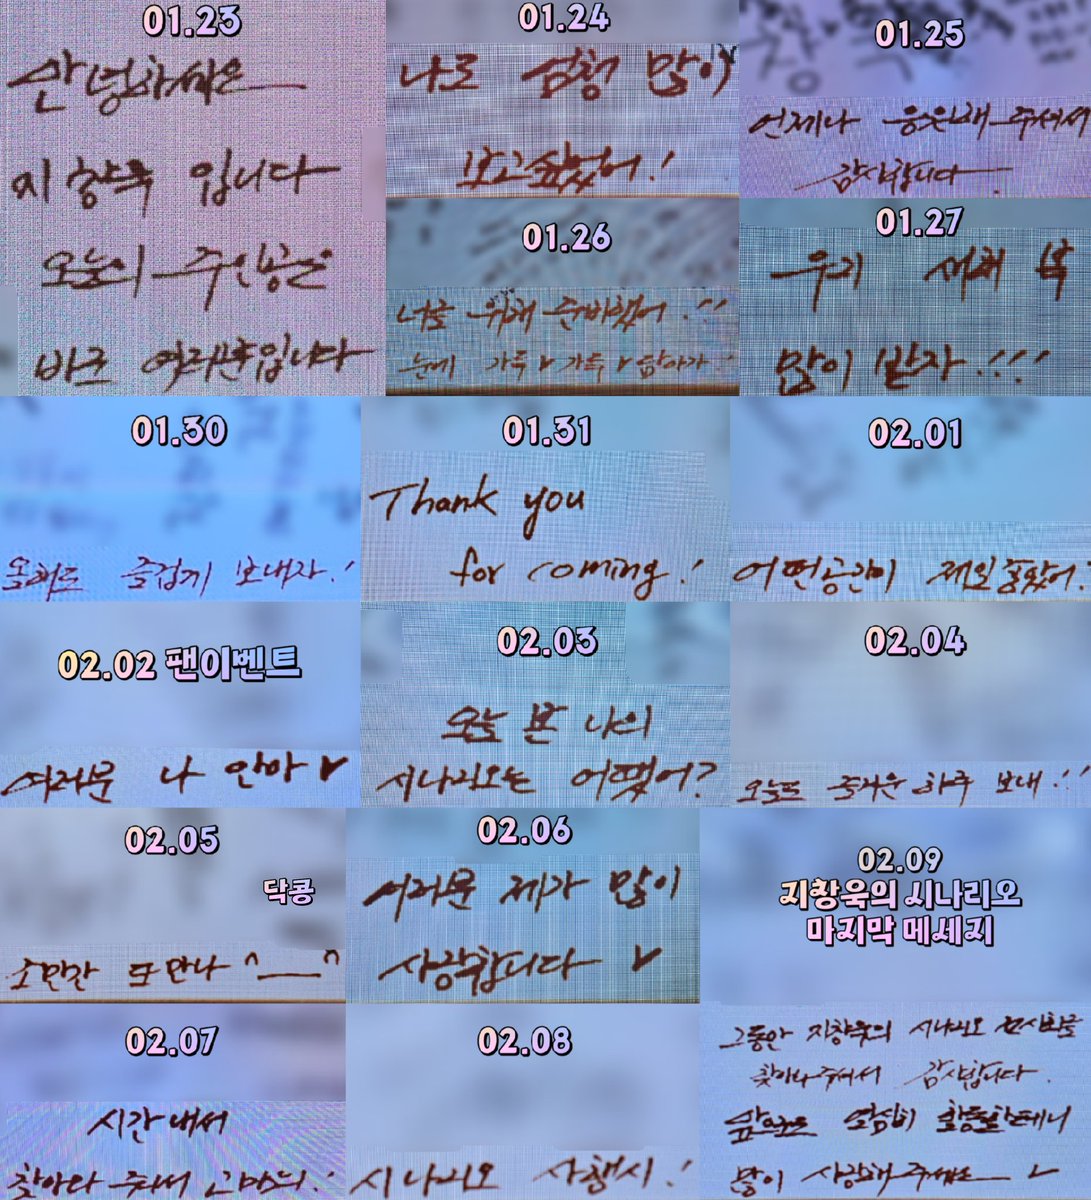 01.23
안녕하세요
지창욱 입니다
오늘의 주인공은
바로 여러분입니다
01.24
나도 엄청 많이
보고싶었어!
01.25
언제나 응원해 주셔서
감사합니다.
01.26
너를 위해 준비했어!!
눈에 가득♥가득♥담아가!
01.27
우리 새해 복
많이 받자!!!
01.30
올해도 즐겁게 보내자!
01.31
Thank you
for coming!
02.01
어떤공간이 제일좋았어?
02.02 팬이벤트
여러분 나 안아♥
02.03
오늘 본 나의
시나리오는 어땠어?
02.04
오늘도 즐거운 하루 보내!!
02.05
닥콩
조만간 또만나 ^__^
02.06
여러분 제가 많이
사랑합니다 ♥
02.07
시간내서
찾아와 줘서 고마워!
02.08
시나리오 사행시!
02.09
지창욱의 시나리오
마지막 메세지
그동안 지창욱의 시나리오 전시회를
찾아와주셔서 감사합니다.
앞으로도 열심히 활동할테니
많이 사랑해 주세요 ♥